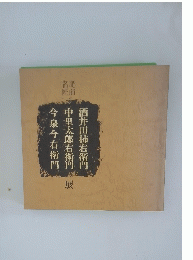 酒井田柿右衛門
中里太郎右衛門 展
今泉今右衛門